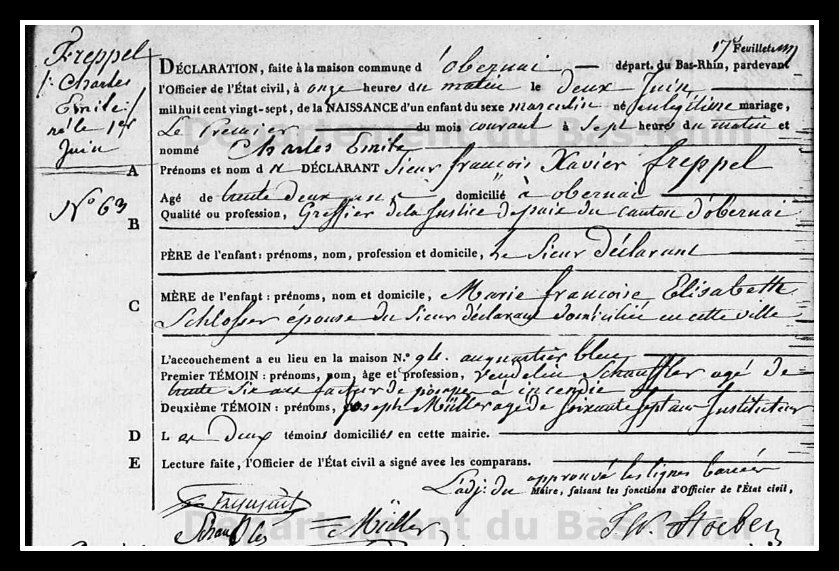 17e Feuillet
Freppel
Charles
Emile
né le 1er
Juin
N° 63
DÉCLARATION, faite à la maison commune d'obernai départ. du Bas-Rhin, pardevant
l'Officier de l'État civil, à onze heures du matin le deux Juin
mil huit cent vingt-sept, de la NAISSANCE d'un enfant du sexe masculin né en légitime mariage,
Le Premier du mois courant à Sept heures du matin et
nommé Charles Emile
A Prénoms et nom du DÉCLARANT Sieur françois Xavier freppel
Agé de trente deux ans domicilié à obernai
B Qualité ou profession, Greffier de la Justice de paix du canton d'obernai
PÈRE de l'enfant: prénoms, nom, profession et domicile, Le Sieur déclarant
C MÈRE de l'enfant: prénoms, nom et domicile, Marie francoise Elisabethe
Schlosser épouse du Sieur déclarant domiciliée en cette ville
L'accouchement a eu lieu en la maison N.° 94. au quartier bleu
Premier TÉMOIN: prénoms, nom, âge et profession, vendelin Schauffler agé de
trente six ans facteur de pompes à incendie
Deuxième TÉMOIN: prénoms, Joseph Müller agé de soixante sept ans Instituteur
D Les Deux témoins domiciliés en cette mairie.
E Lecture faite, l'Officier de l'État civil a signé avec les comparans.
approuvé les lignes barrées
L'adj. du Maire, faisant les fonctions d'Officier de l'État civil,
Müller
Département du Bas-Rhin
Département du Bas-Rhin